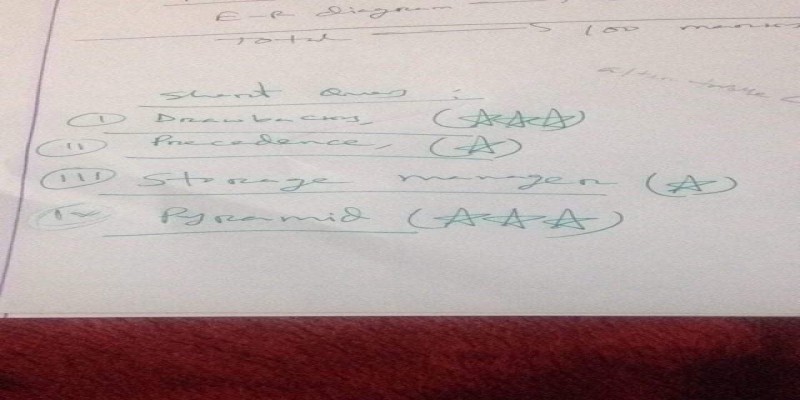 E-R diagram
Total 100 marks
Short Ques :
(i) Drawbacks, (☆☆☆)
(ii) Precedence, (☆)
(iii) Storage manager (☆)
(iv) Pyramid (☆☆☆)